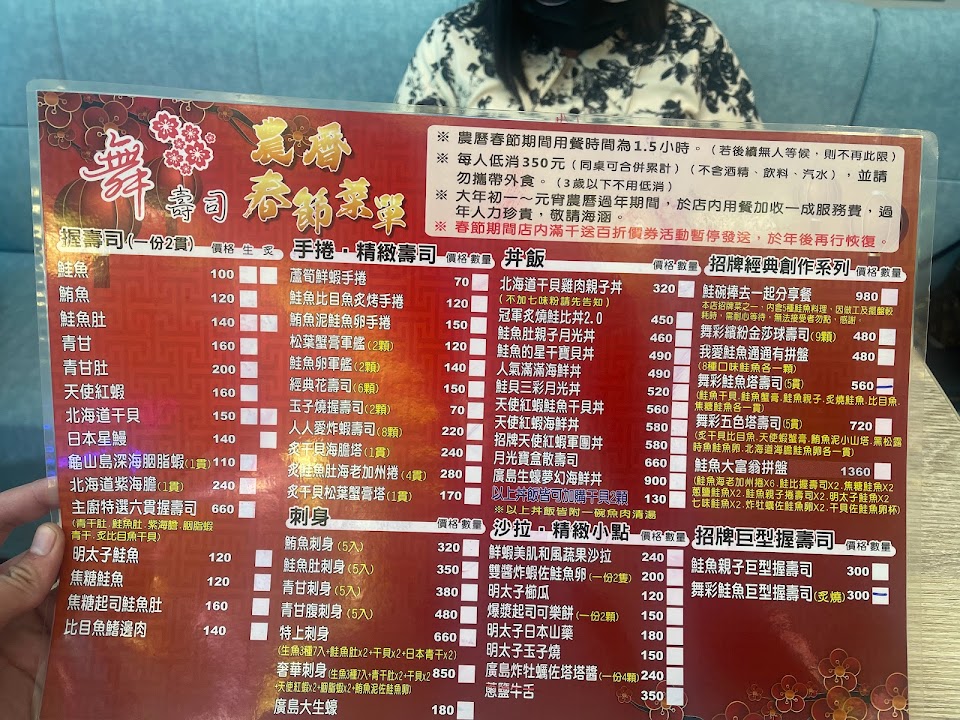 舞 壽司
農曆
春節菜單
※ 農曆春節期間用餐時間為1.5小時。(若後續無人等候，則不再此限)
※ 每人低消350元(同桌可合併累計)(不含酒精、飲料、汽水)，並請
勿攜帶外食。(3歲以下不用低消)
※ 大年初一~元宵農曆過年期間，於店內用餐加收一成服務費，過
年人力珍貴，敬請海涵。
※ 春節期間店內滿千送百折價券活動暫停發送，於年後再行恢復。
握壽司(一份2貫) 價格 生 炙
鮭魚 100
鮪魚 120
鮭魚肚 140
青甘 160
青甘肚 200
天使紅蝦 160
北海道干貝 150
日本星鰻 140
龜山島深海胭脂蝦(1貫) 110
北海道紫海膽(1貫) 240
主廚特選六貫握壽司 660
(青干肚.鮭魚肚.紫海膽.胭脂蝦
青干.炙比目魚干貝)
明太子鮭魚 120
焦糖鮭魚 120
焦糖起司鮭魚肚 160
比目魚鰭邊肉 140
手捲·精緻壽司 價格 數量
蘆筍鮮蝦手捲 70
鮭魚比目魚炙烤手捲 120
鮪魚泥鮭魚卵手捲 150
松葉蟹軍艦(2顆) 120
鮭魚卵軍艦(2顆) 140
經典花壽司(6顆) 150
玉子燒握壽司(2顆) 70
人人愛炸蝦壽司(8顆) 220
炙干貝海膽塔(1貫) 240
炙鮭魚肚海老加州捲(4貫) 280
炙干貝松葉蟹膏塔(1貫) 170
刺身 價格 數量
鮪魚刺身(5入) 320
鮭魚肚刺身(5入) 350
青甘刺身(5入) 380
青甘腹刺身(5入) 480
特上刺身 660
(生魚3種7入+鮭魚肚x2+干貝x2+日本青干x2)
奢華刺身(生魚3種7入+青干肚x2+干貝x2 850
+天使紅蝦x2+胭脂蝦x2+鮪魚泥佐鮭魚卵)
廣島大生蠔 180
丼飯 價格 數量
北海道干貝雞肉親子丼 320
(不加七味粉請先告知)
冠軍炙燒鮭比丼2.0 450
鮭魚肚親子月光丼 460
鮭魚的星干寶貝丼 490
人氣滿滿海鮮丼 490
鮭貝三彩月光丼 520
天使紅蝦鮭魚干貝丼 560
天使紅蝦海鮮丼 580
招牌天使紅蝦軍團丼 580
月光寶盒散壽司 660
廣島生蠔夢幻海鮮丼 900
以上丼飯皆可加購干貝2顆 130
※以上丼飯皆附一碗魚肉清湯
沙拉·精緻小點 價格 數量
鮮蝦美肌和風蔬果沙拉 240
雙醬炸蝦佐鮭魚卵(一份2隻) 200
明太子櫛瓜 120
爆漿起司可樂餅(一份2顆) 150
明太子日本山藥 180
明太子玉子燒 150
廣島炸牡蠣佐塔塔醬(一份4顆) 240
蔥鹽牛舌 350
招牌經典創作系列 價格 數量
鮭碗捧去一起分享餐 980
本店招牌菜之一，內含5種鮭魚料理，因做工及擺盤較
耗時，需耐心等待，無法接受者勿點，感謝。
舞彩繽紛金莎球壽司(9顆) 480
我愛鮭魚通通有拼盤 480
(8種口味鮭魚各一顆)
舞彩鮭魚塔壽司(5貫) 560
(鮭魚干貝.鮭魚蟹膏.鮭魚親子.炙燒鮭魚.比目魚.
焦糖鮭魚各一貫)
舞彩五色塔壽司(5貫) 720
(炙干貝比目魚.天使蝦蟹膏.鮪魚泥小山塔.黑松露
時魚鮭魚卵.北海道海膽鮭魚卵各一貫)
鮭魚大富翁拼盤 1360
(鮭魚海老加州捲X6.鮭比握壽司X2.焦糖鮭魚X2
蔥鹽鮭魚X2.鮭魚親子捲壽司X2.明太子鮭魚X2
七味鮭魚X2.炸牡蠣佐鮭魚卵X2.干貝佐鮭魚卵杯)
招牌巨型握壽司 價格 數量
鮭魚親子巨型握壽司 300
舞彩鮭魚巨型握壽司(炙燒) 300